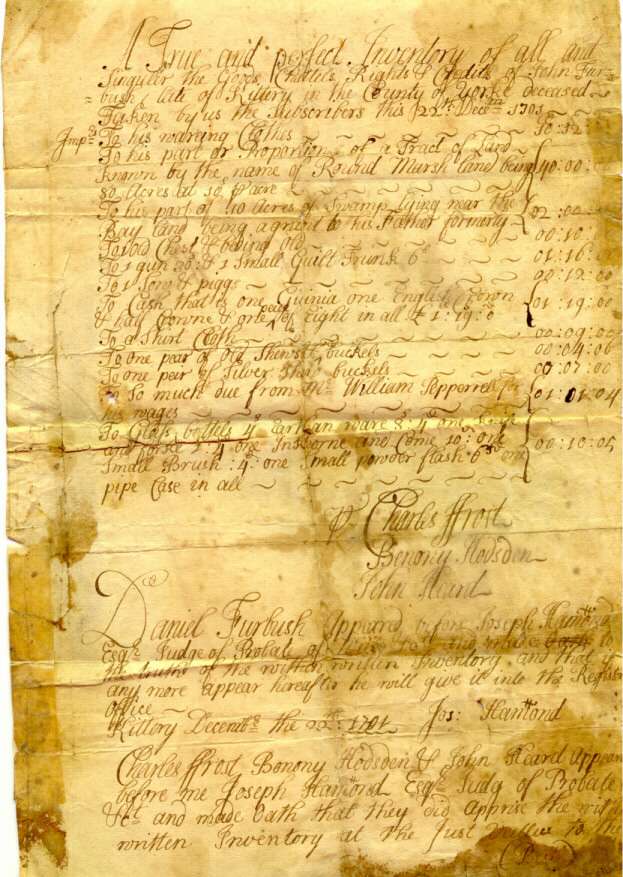 A True and perfect Inventory of all and
Singuler the Goods Chattels Rights & Credits of John Fur=
=bush late of Kittery in the County of Yorke deceased
Taken by us the Subscribers this 22th Decem
Imps To his waring Clothes 10:12:
To his part or Proportion of a Tract of Land
known by the name of Round Marsh land being 40:00:
80 Acres at 10 acre
To his part of 40 Acres of Swamp lying near the
Bay land being agrent to his Father formerly 02:00
To old Chest & beding Old 00:10:
To 1 gun & 1 Small Guilt Trunk 6 01:16:
To 1 Sow & piggs 00:12:00
To Cash that is one Guinia one English Crown
& half Crowne & one peice of Eight in all £1:19:0 01:19:00
To a Shirt Cloth 00:09:00
To one pear of Old buckels 00:04:06
To one peir of Silver Shoe buckels 00:07:00
To So much due from Mr William Pepperrell for
his wages 01:01:04
To Glass bottels 4 Earthan ware 8:4d one
and 2:4 one Inkhorne and Come 10: one
Small Brush :4d one Small powder flask 6d one 00:10:05
pipe Case in all
p Charles ffrost
Benony Hodsden
John Heard
Daniel Furbush Appeard before Joseph Hamond
Esqr Judge of Probate of and made Oath to
the truth of the within written Inventory and that if
any more appear hereafter he will give it into the Registrs
office
Kittery Decembr the 22th Jos: Hamond
Charles ffrost Benony Hodsden & John Heard Appeard
before me Joseph Hamond Esqr Judg of Probate
&c and made Oath that they did Apprise the within
written Inventory at the Just vallue to the